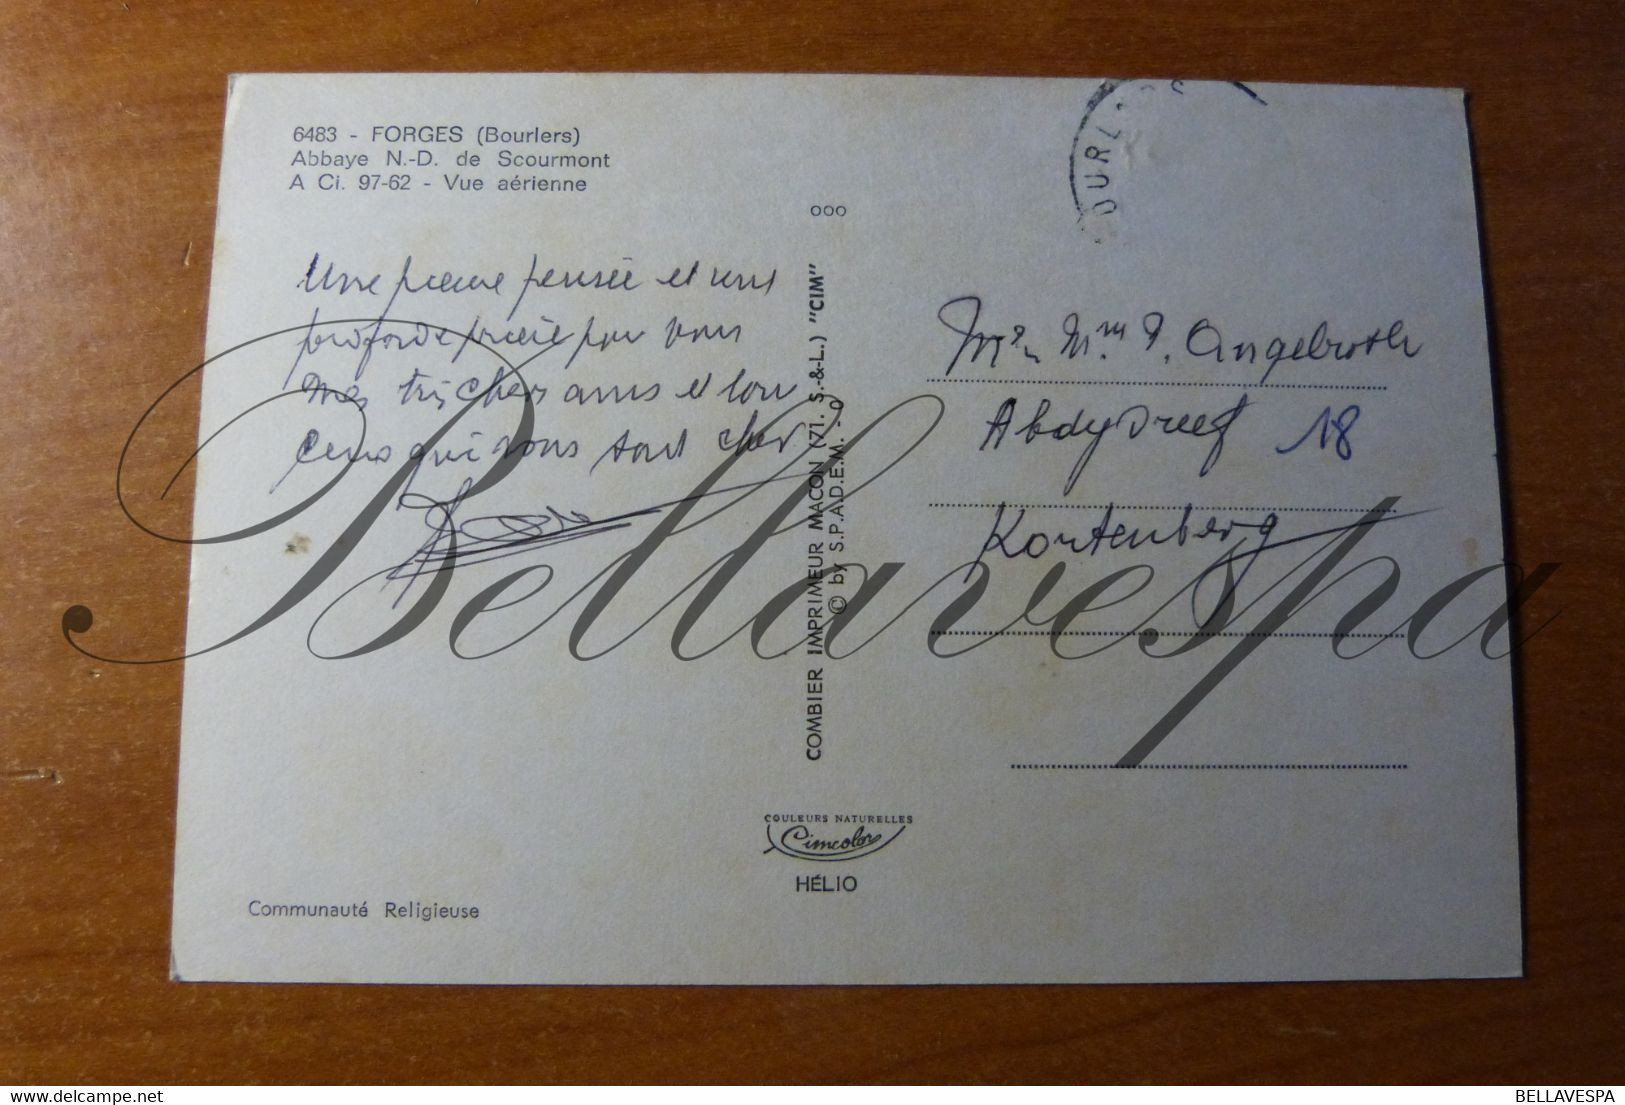 6483 - FORGES (Bourlers)
Abbaye N.-D. de Scourmont
A Ci. 97-62 - Vue aérienne
Une pieuse pensée et une
profonde prière pour vous
Mes très chers amis et tous
ceux qui vous sont cher.
OURL
ooo
COMBIER IMPRIMEUR MACON (71. S.-&-L.) "CIM"
© by S.P.A.D.E.M. - 0
Mr Mme P. Angebroth
Abdydreef 18
Kortenberg
COULEURS NATURELLES
Cimcolor
HÉLIO
Communauté Religieuse
Bellavespa
BELLAVESPA